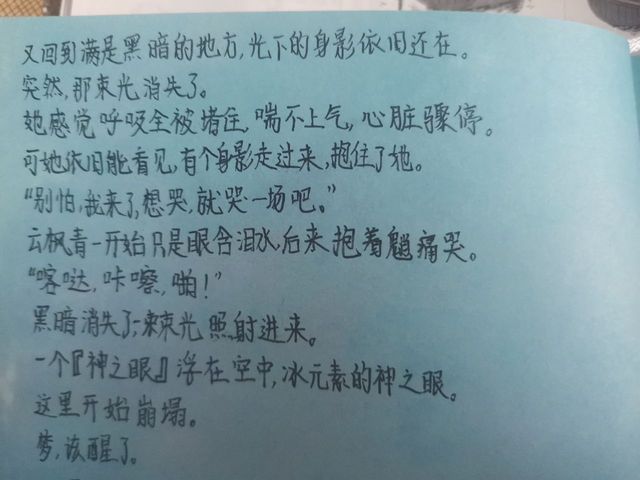 又回到满是黑暗的地方,光下的身影依旧还在。
突然,那束光消失了。
她感觉呼吸全被堵住,喘不上气,心脏骤停。
可她依旧能看见,有个身影走过来,抱住了她。
“别怕,我来了,想哭,就哭一场吧。”
云枫青一开始只是眼含泪水,后来抱着魈痛哭。
“喀哒,咔嚓,啪!”
黑暗消失了,一束光照射进来。
一个『神之眼』浮在空中,冰元素的神之眼。
这里开始崩塌。
梦,该醒了。